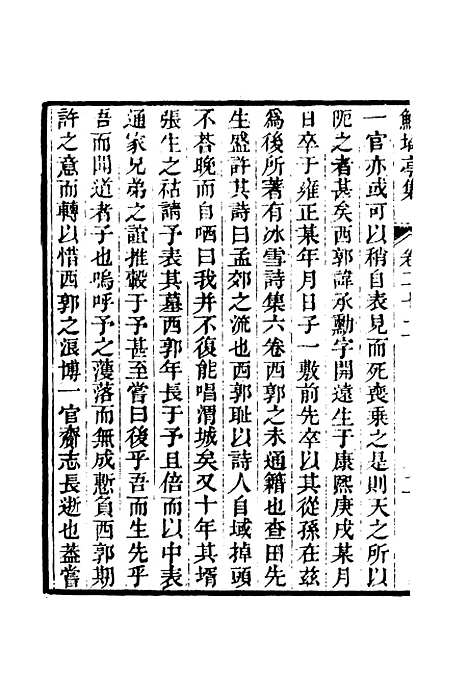 鮚埼亭集 卷二十二 二
一官亦或可以稍自表見而死喪乗之是則天之所以
阨之者甚矣西郭諱承勳字開遠生于康熙庚戌某月
日卒于雍正某年月日子一敷前先卒以其從孫在兹
爲後所著有冰雪詩集六卷西郭之未通籍也查田先
生盛許其詩曰孟郊之流也西郭耻以詩人自域掉頭
不荅晚而自哂曰我并不復能唱渭城矣又十年其壻
張生之祜請予表其墓西郭年長于予且倍而以中表
通家兄弟之誼推轂于予甚至嘗曰後乎吾而生先乎
吾而聞道者子也嗚呼予之濩落而無成慙負西郭期
許之意而轉以惜西郭之浪博一官齎志長逝也葢嘗